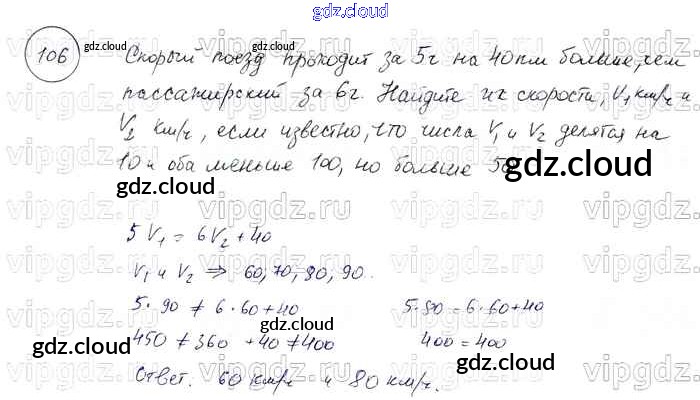 gdz.cloud
106
gdz.cloud
Скорый поезд проходит за 5ч на 40км больше, чем
пассажирский за 6ч. Найдите их скорости, V₁ км/ч и
V₂ км/ч, если известно, что числа V₁ и V₂ делятся на
10 и оба меньше 100, но больше 50.
gdz.cloud
gdz.cloud
5V₁ = 6V₂ + 40
V₁ и V₂ ⇒ 60, 70, 80, 90.
5·90 ≠ 6·60+40 5·80 = 6·60+40
450 ≠ 360 +40 ≠ 400 400 = 400
gdz.cloud
gdz.cloud
gdz.cloud
Ответ. 60 км/ч и 80 км/ч.
gdz.cloud
vipgdz.ru